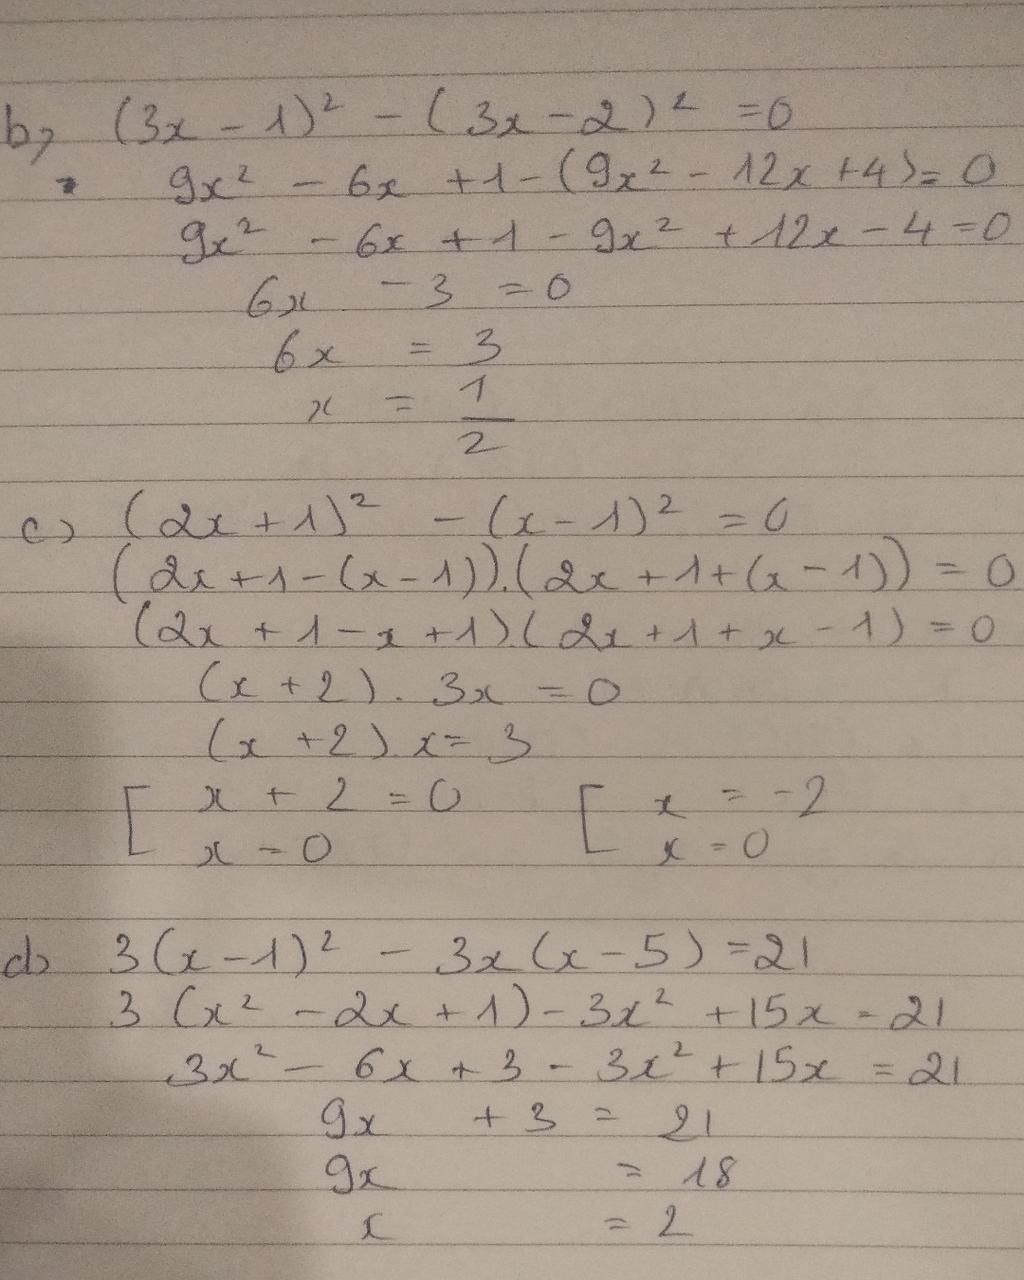 b, (3x - 1)² - (3x - 2)² = 0
9x² - 6x + 1 - (9x² - 12x + 4) = 0
9x² - 6x + 1 - 9x² + 12x - 4 = 0
6x - 3 = 0
6x = 3
x = 1/2
c) (2x + 1)² - (x - 1)² = 0
(2x + 1 - (x - 1)).(2x + 1 + (x - 1)) = 0
(2x + 1 - x + 1).(2x + 1 + x - 1) = 0
(x + 2) . 3x = 0
(x + 2) . x = 3
[ x + 2 = 0 [ x = -2
x = 0 x = 0
d) 3(x - 1)² - 3x(x - 5) = 21
3(x² - 2x + 1) - 3x² + 15x = 21
3x² - 6x + 3 - 3x² + 15x = 21
9x + 3 = 21
9x = 18
x = 2